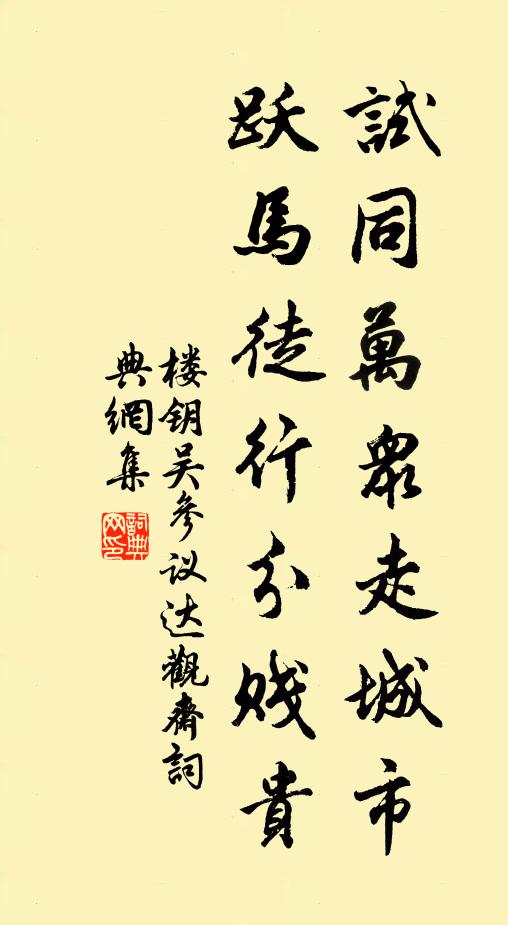 試同萬眾走城市
跃馬徒行分贱貴
楼钥吴參议达觀齋詞
典網集
詞典
网印